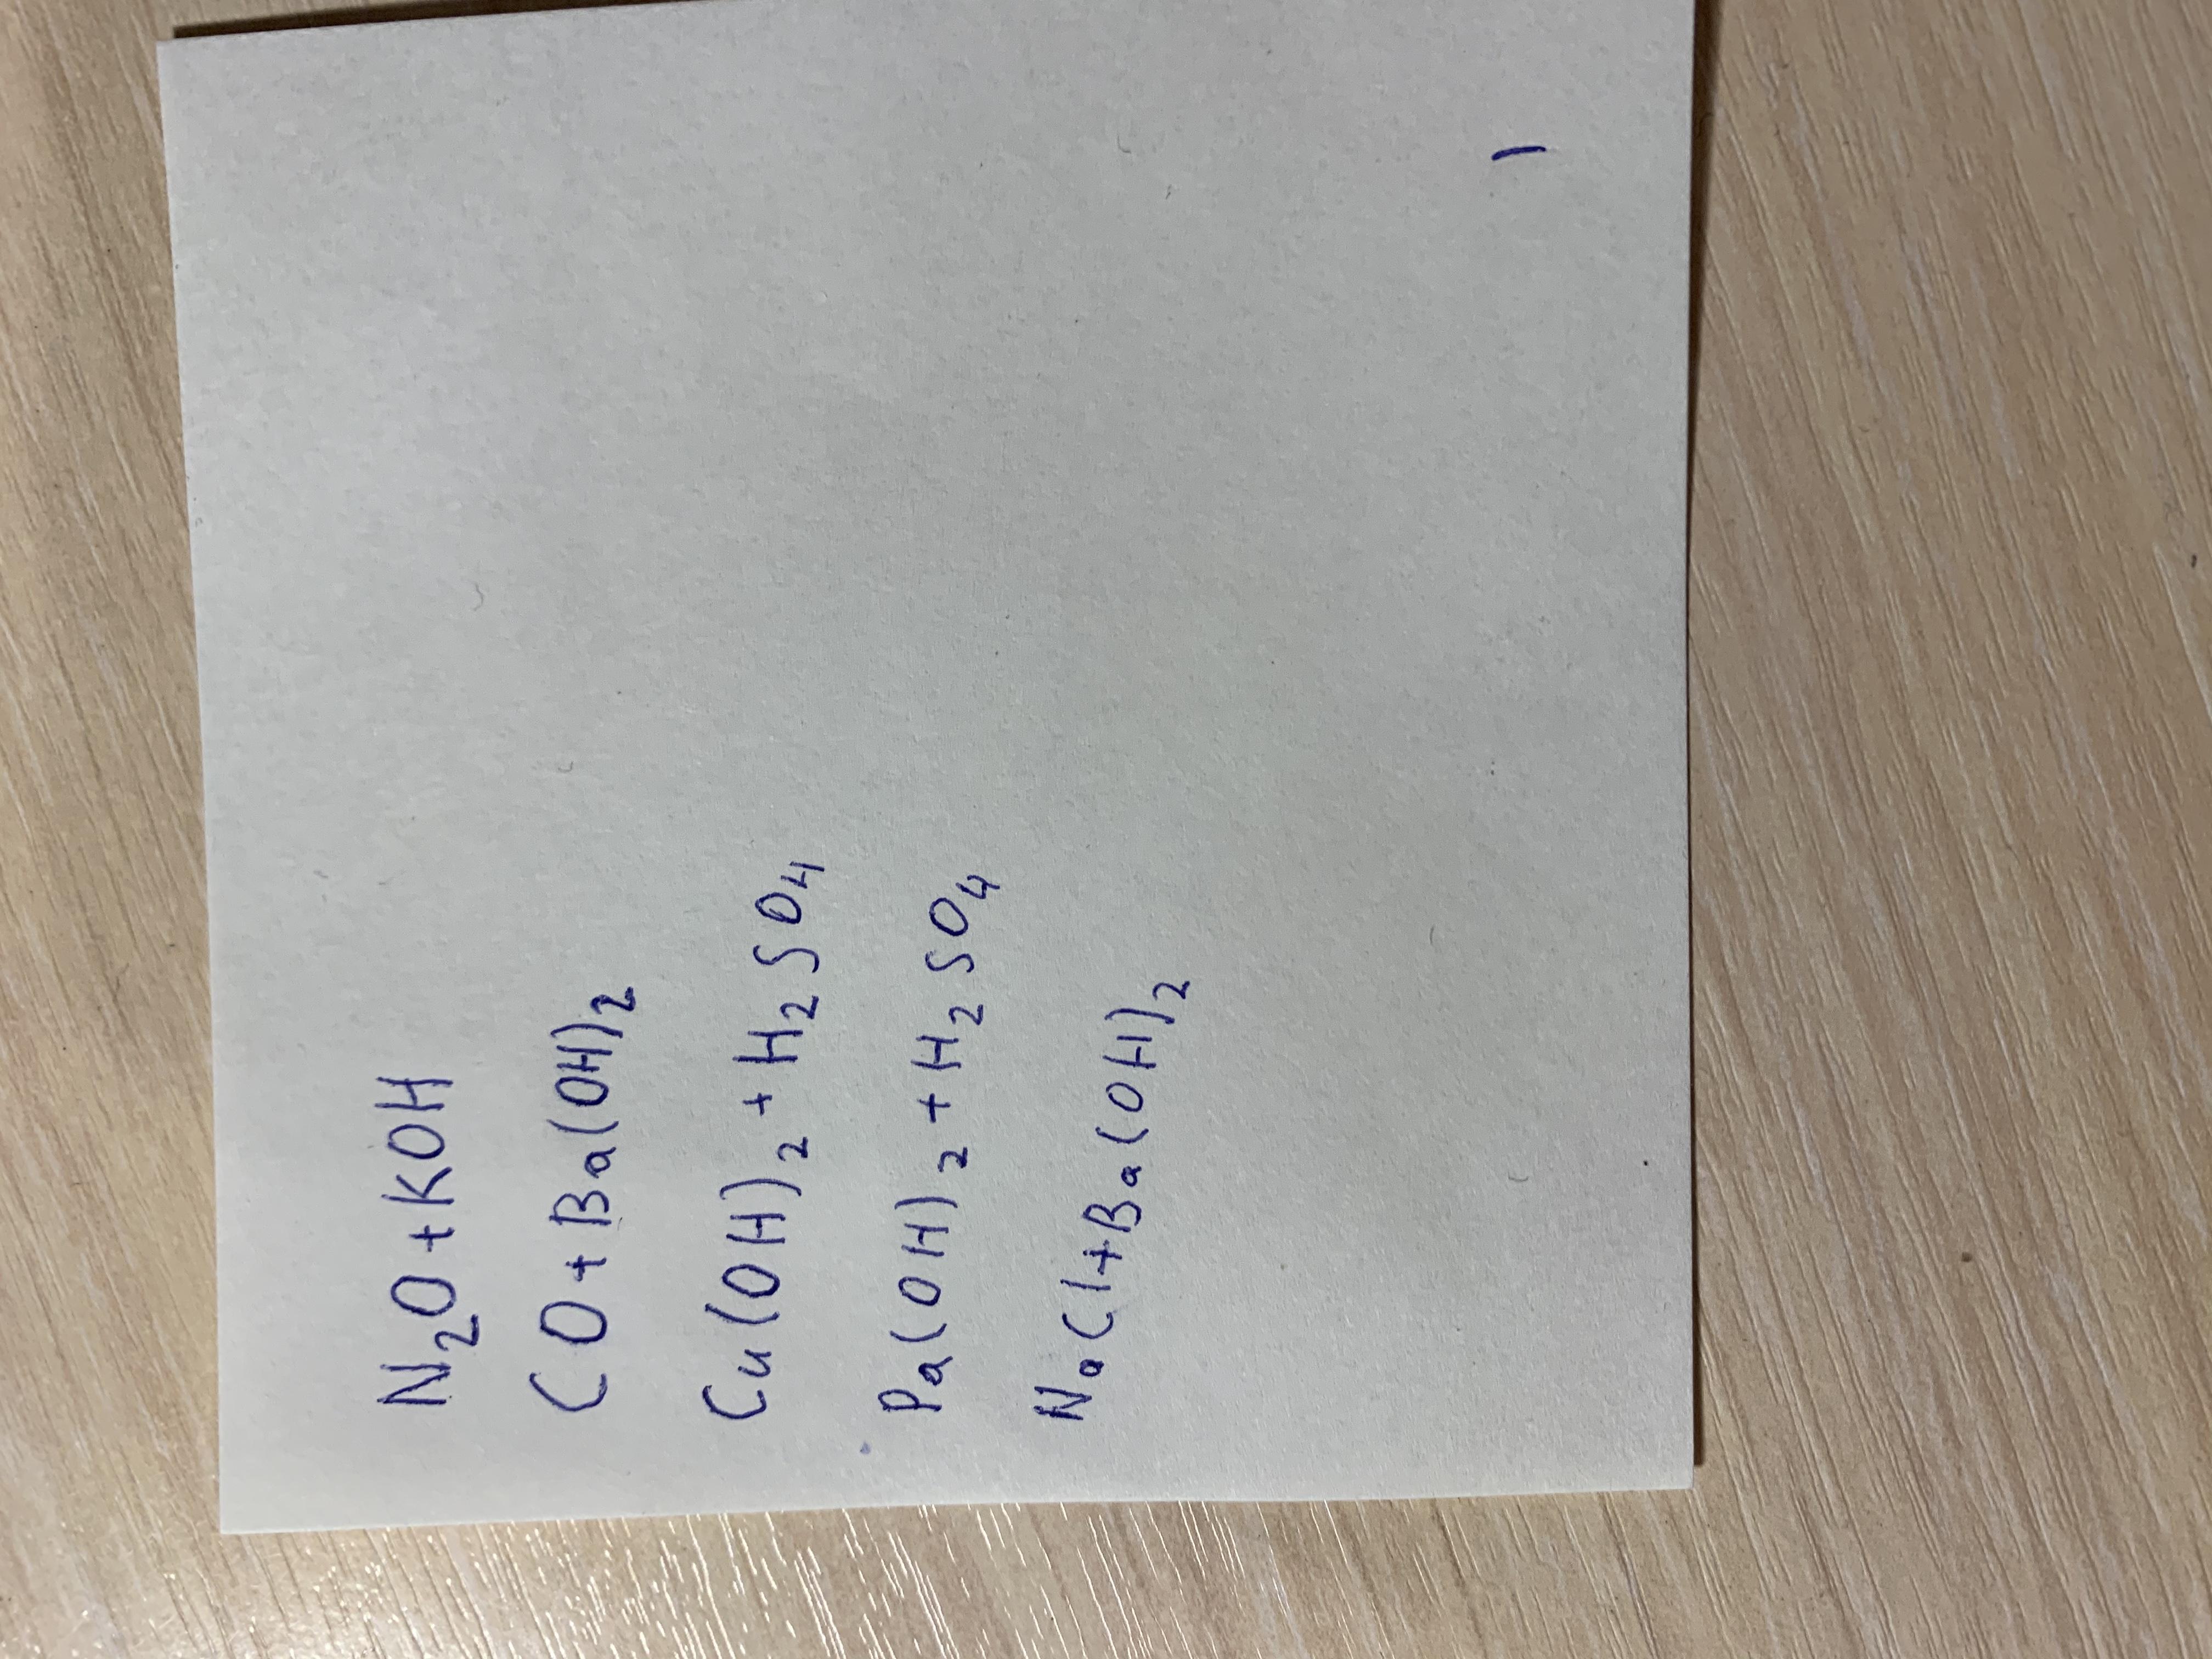 N₂O + KOH
CO + Ba(OH)₂
Cu(OH)₂ + H₂SO₄
Pa(OH)₂ + H₂SO₄
NaCl + Ba(OH)₂